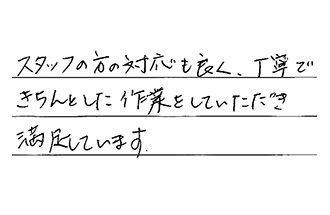 スタッフの方の対応も良く、丁寧で
きちんとした作業をしていただき
満足しています.